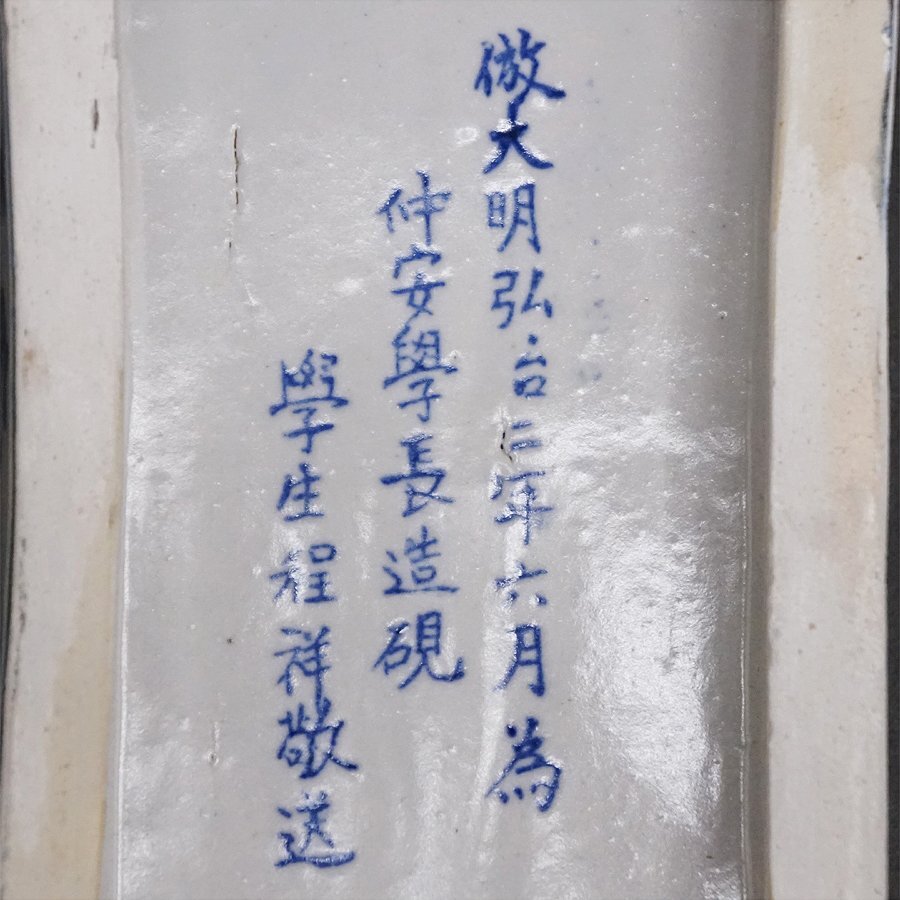 倣大明弘治二年六月為
仲安學長造硯
學生程祥敬送